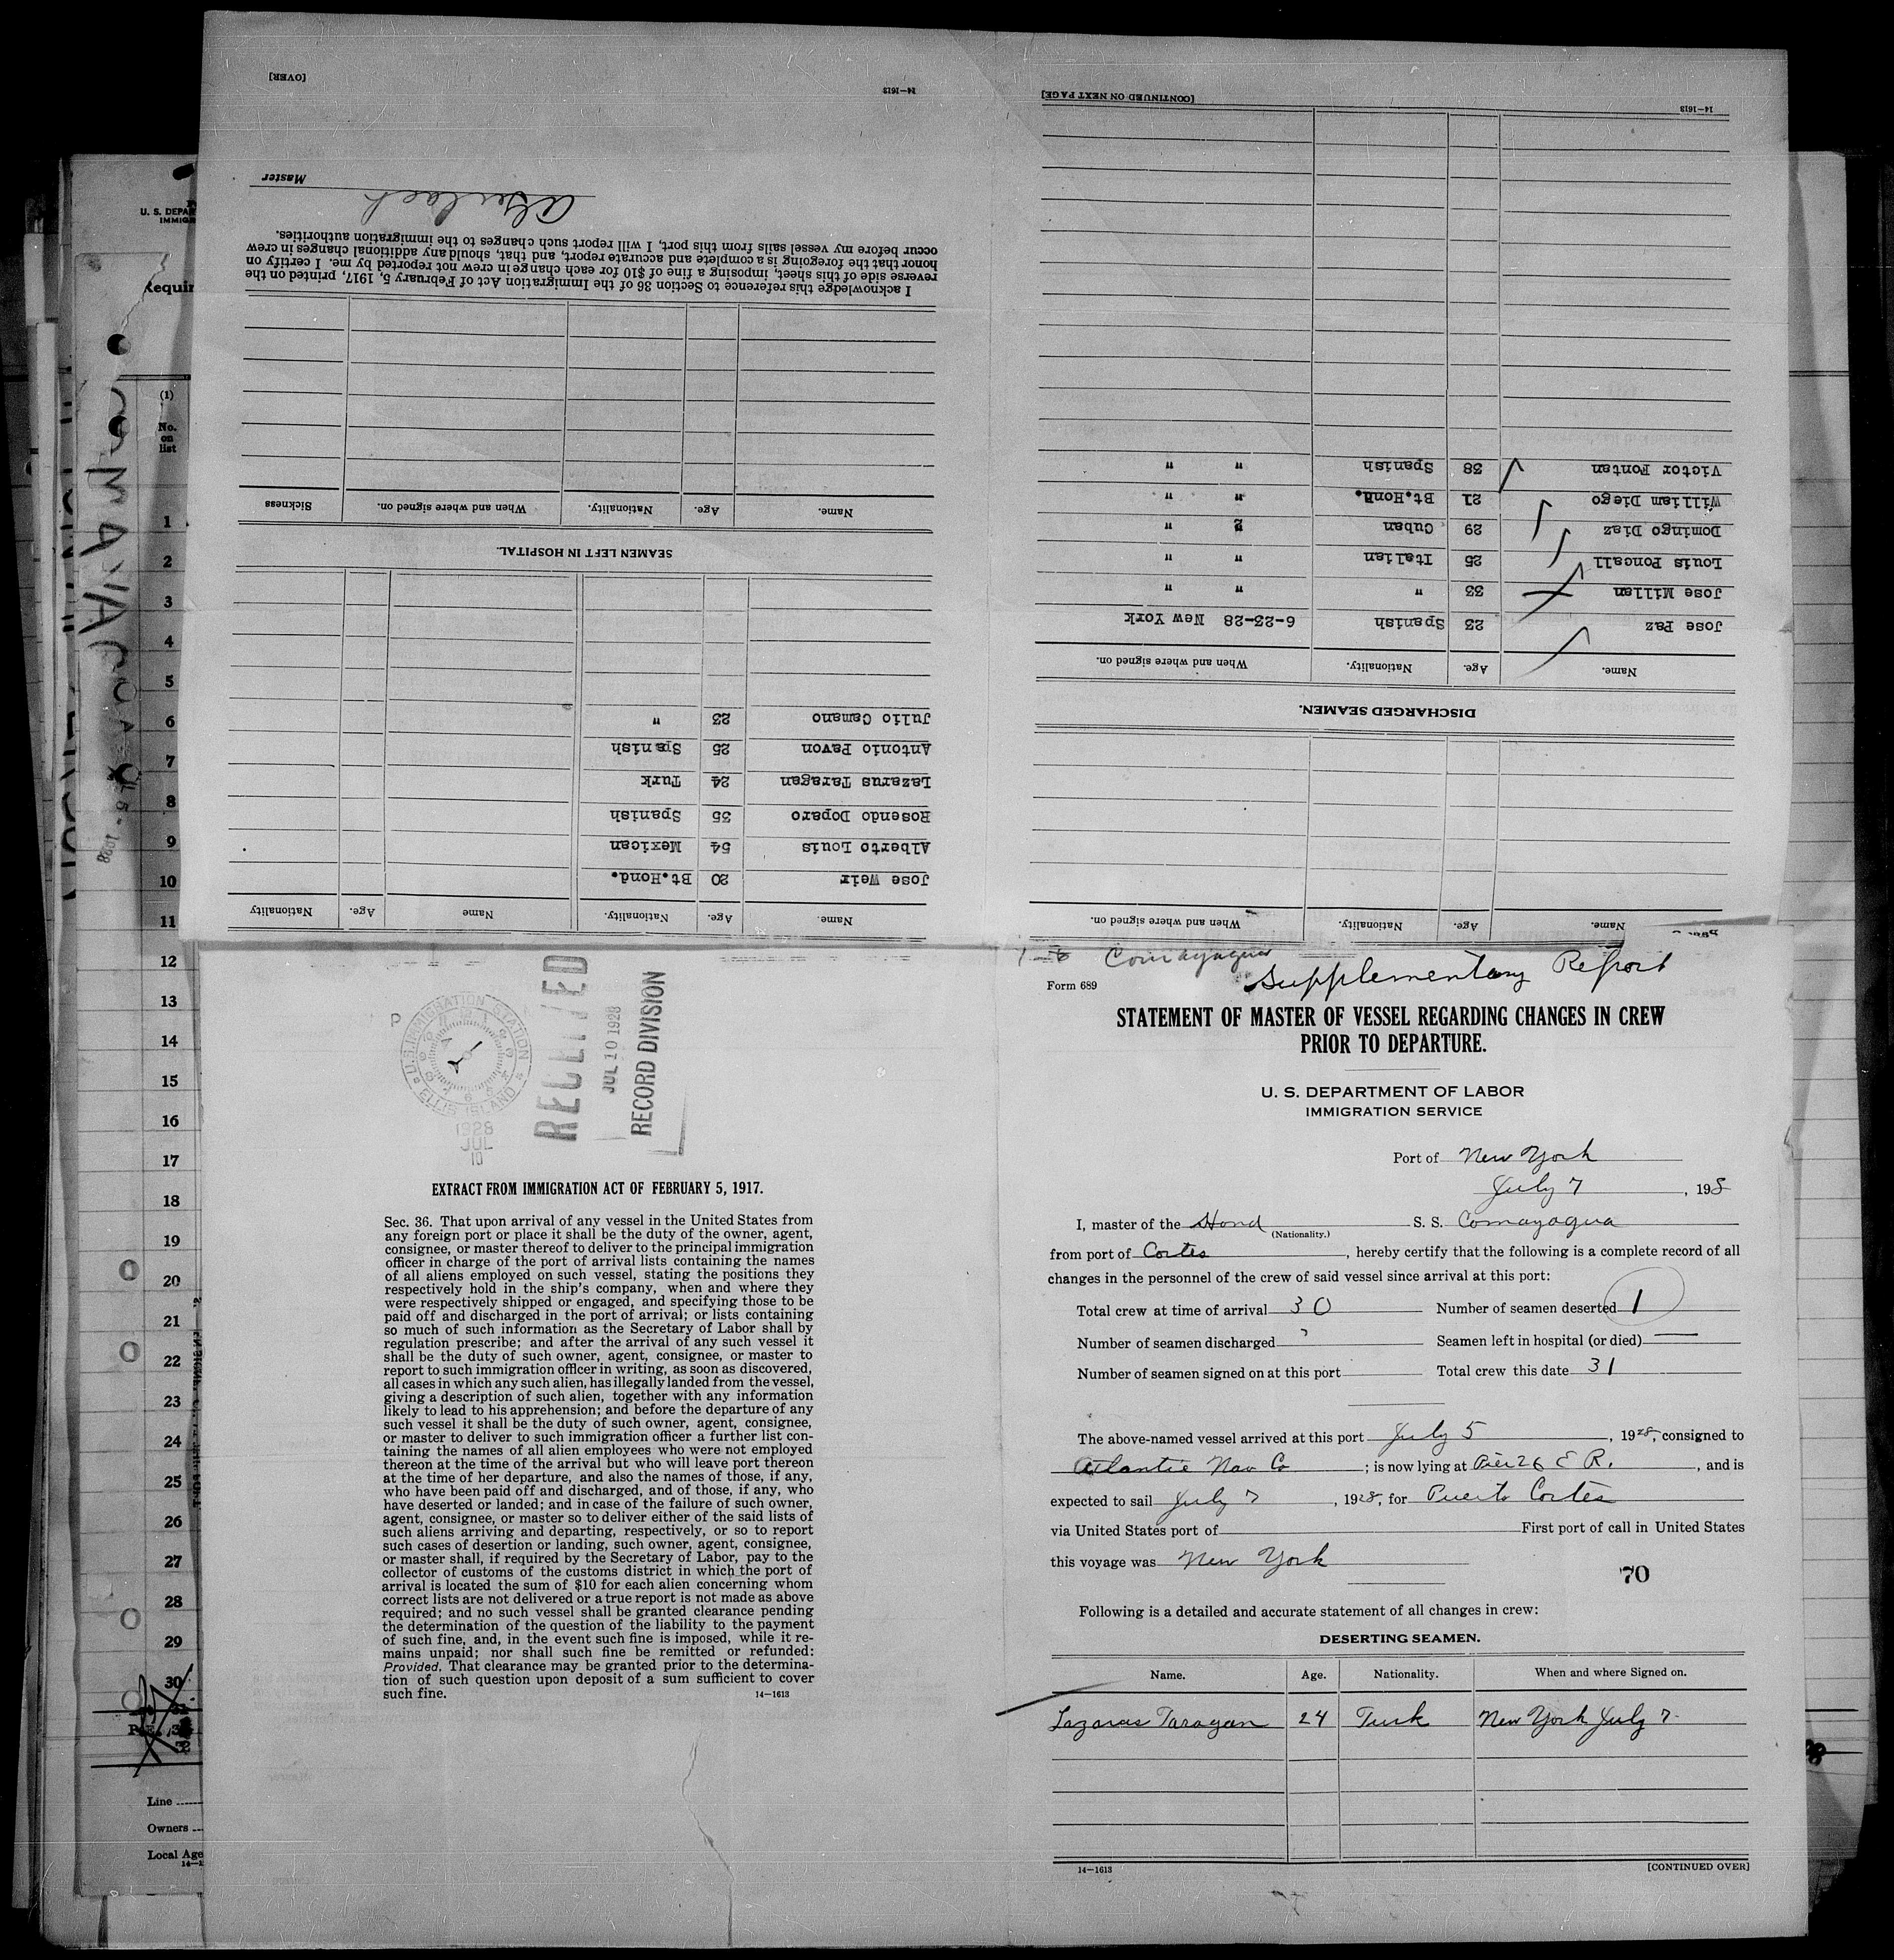 Comayagua
Supplementary Report
Form 689
STATEMENT OF MASTER OF VESSEL REGARDING CHANGES IN CREW
PRIOR TO DEPARTURE.
U. S. DEPARTMENT OF LABOR
IMMIGRATION SERVICE
Port of New York
July 7, 198
I, master of the Hond S. S. Comayagua
(Nationality.)
from port of Cortes, hereby certify that the following is a complete record of all
changes in the personnel of the crew of said vessel since arrival at this port:
Total crew at time of arrival 30 Number of seamen deserted 1
Number of seamen discharged Seamen left in hospital (or died) —
Number of seamen signed on at this port Total crew this date 31
The above-named vessel arrived at this port July 5, 1928, consigned to
Atlantic Nav Co; is now lying at Pier 26 E R., and is
expected to sail July 7, 1928, for Puerto Cortes
via United States port of First port of call in United States
this voyage was New York
70
Following is a detailed and accurate statement of all changes in crew:
DESERTING SEAMEN.
Name. Age. Nationality. When and where Signed on.
Lazaras Taragan 24 Turk New York July 7
14—1613 [CONTINUED OVER]
U.S. IMMIGRATION STATION
ELLIS ISLAND
1928
JUL
10
P
RECEIVED
JUL 10 1928
RECORD DIVISION
EXTRACT FROM IMMIGRATION ACT OF FEBRUARY 5, 1917.
Sec. 36. That upon arrival of any vessel in the United States from
any foreign port or place it shall be the duty of the owner, agent,
consignee, or master thereof to deliver to the principal immigration
officer in charge of the port of arrival lists containing the names
of all aliens employed on such vessel, stating the positions they
respectively hold in the ship's company, when and where they
were respectively shipped or engaged, and specifying those to be
paid off and discharged in the port of arrival; or lists containing
so much of such information as the Secretary of Labor shall by
regulation prescribe; and after the arrival of any such vessel it
shall be the duty of such owner, agent, consignee, or master to
report to such immigration officer in writing, as soon as discovered,
all cases in which any such alien, has illegally landed from the vessel,
giving a description of such alien, together with any information
likely to lead to his apprehension; and before the departure of any
such vessel it shall be the duty of such owner, agent, consignee,
or master to deliver to such immigration officer a further list con-
taining the names of all alien employees who were not employed
thereon at the time of the arrival but who will leave port thereon
at the time of her departure, and also the names of those, if any,
who have been paid off and discharged, and of those, if any, who
have deserted or landed; and in case of the failure of such owner,
agent, consignee, or master so to deliver either of the said lists of
such aliens arriving and departing, respectively, or so to report
such cases of desertion or landing, such owner, agent, consignee,
or master shall, if required by the Secretary of Labor, pay to the
collector of customs of the customs district in which the port of
arrival is located the sum of $10 for each alien concerning whom
correct lists are not delivered or a true report is not made as above
required; and no such vessel shall be granted clearance pending
the determination of the question of the liability to the payment
of such fine, and, in the event such fine is imposed, while it re-
mains unpaid; nor shall such fine be remitted or refunded:
Provided, That clearance may be granted prior to the determina-
tion of such question upon deposit of a sum sufficient to cover
such fine.
14—1613
Name. Age. Nationality. When and where signed on.
DISCHARGED SEAMEN.
Name. Age. Nationality. When and where signed on.
Jose Paz 23 Spanish 6-23-28 New York
Jose Millan 33 " " "
Louis Poncall 25 Italian " "
Domingo Diaz 29 Cuban " "
William Diego 21 Bt.Hond. " "
Victor Fontan 38 Spanish " "
14—1613 [CONTINUED ON NEXT PAGE]
Name. Age. Nationality. Name Age. Nationality
Jose Weir 20 Bt.Hond.
Alberto Louis 54 Mexican
Rosendo Doparo 35 Spanish
Lazarus Taragan 24 Turk
Antonio Pavon 25 Spanish
Julio Camano 23 "
SEAMEN LEFT IN HOSPITAL.
Name. Age. Nationality. When and where signed on. Sickness
I acknowledge this reference to Section 36 of the Immigration Act of February 5, 1917, printed on the
reverse side of this sheet, imposing a fine of $10 for each change in crew not reported by me. I certify on
honor that the foregoing is a complete and accurate report, and that, should any additional changes in crew
occur before my vessel sails from this port, I will report such changes to the immigration authorities.
Master
14—1613 [OVER]
U. S. DEPAR
IMMIGR
Requir
(1)
No.
on
list
1
2
3
4
5
6
7
8
9
10
11
12
13
14
15
16
17
18
19
20
21
22
23
24
25
26
27
28
29
30
Line
Owners
Local Age